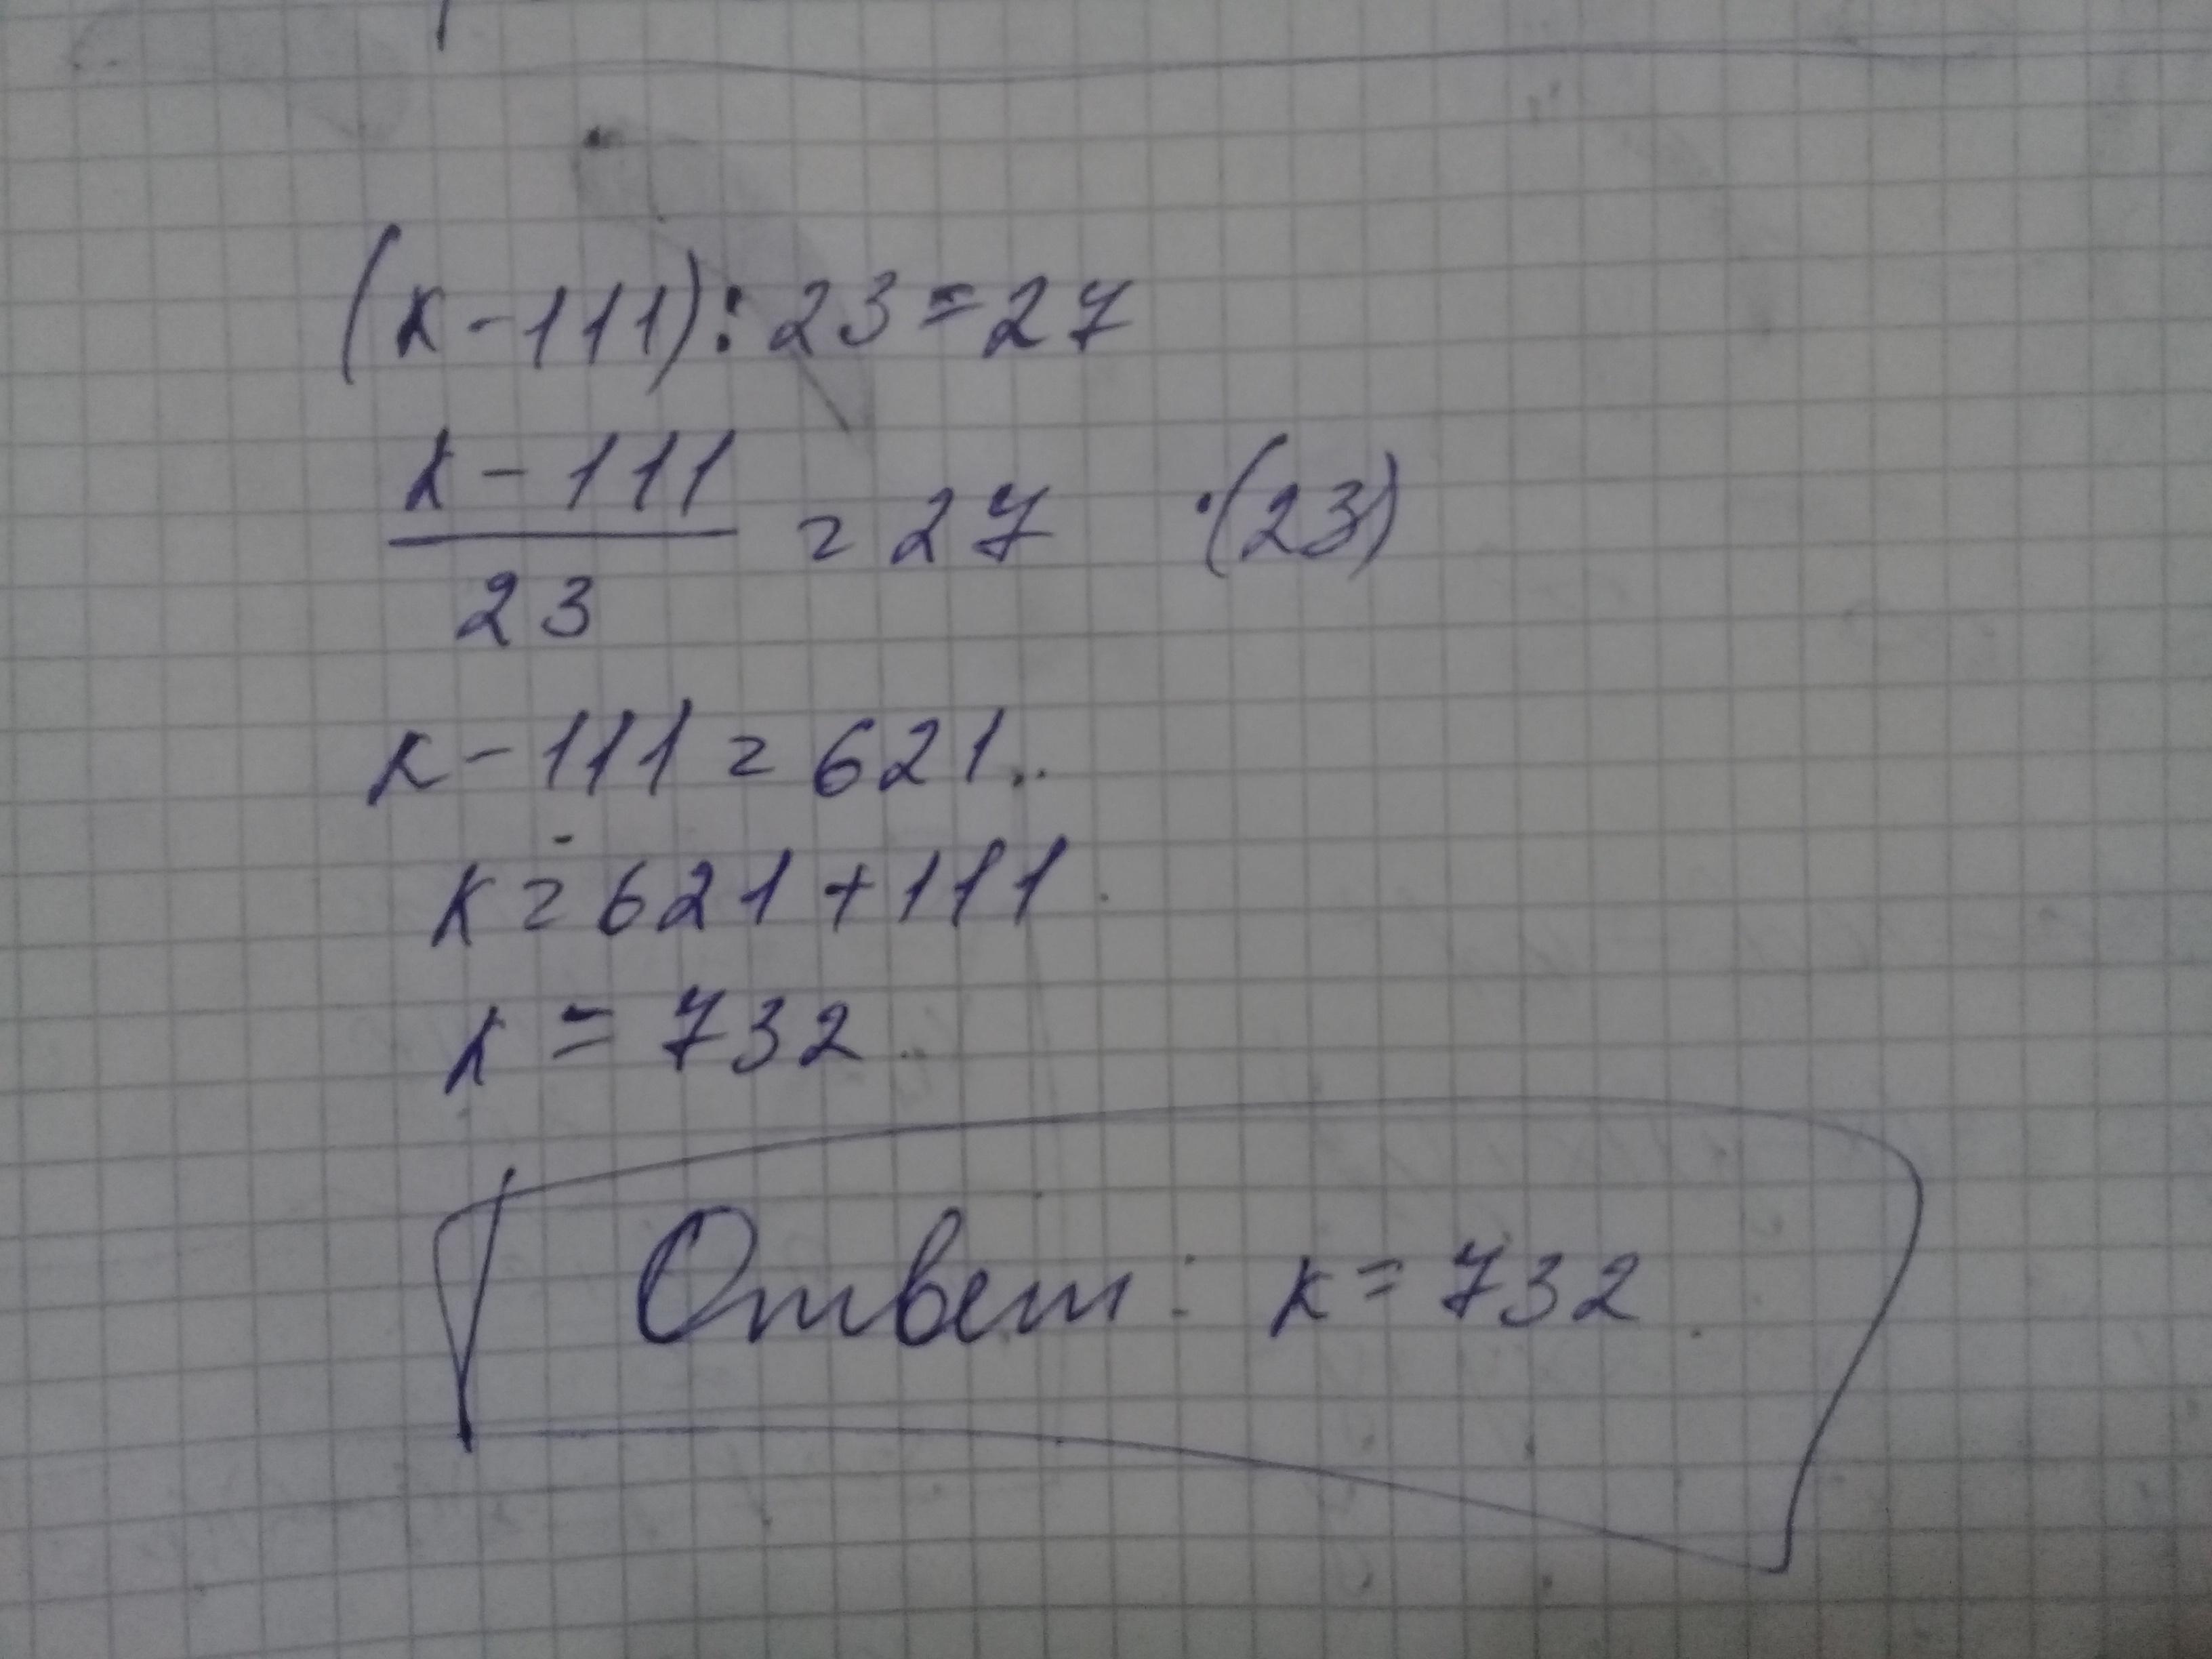 (к-111):23=27
к-111
23
=27 ·(23)
к-111=621..
к=621+111
к=732.
Ответ: к=732.